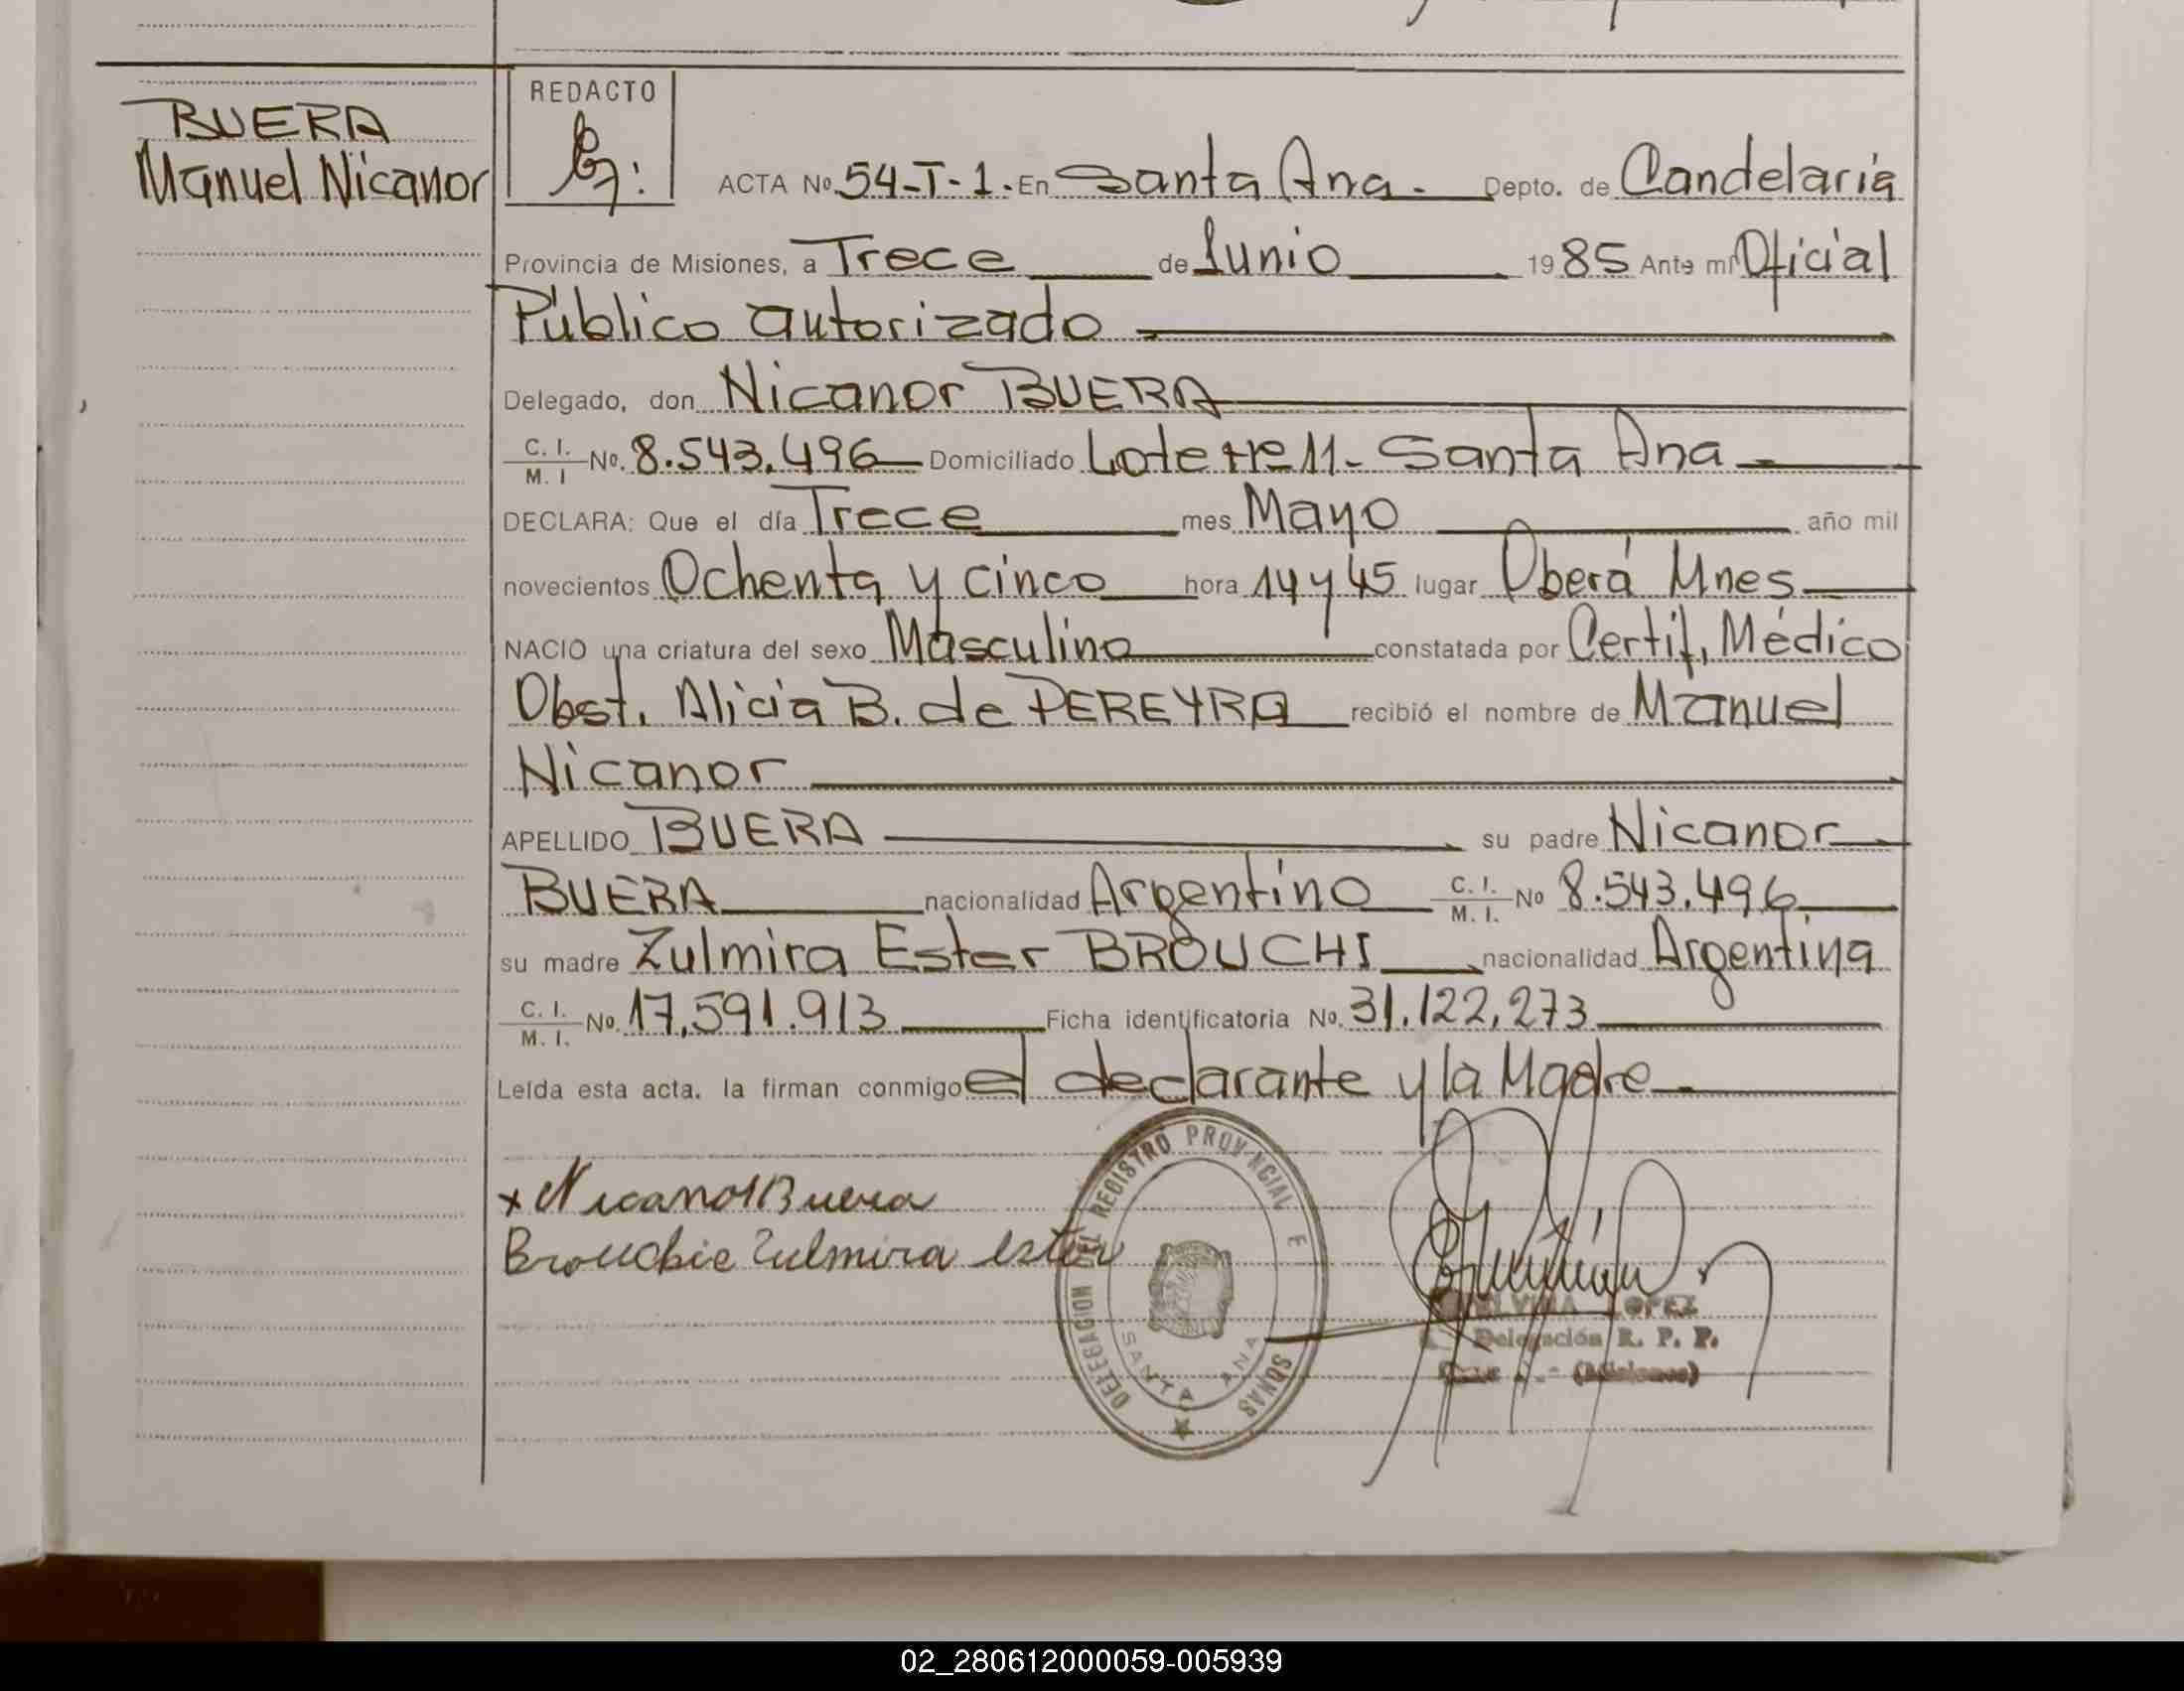 BUERA
Manuel Nicanor
REDACTO
ACTA No. 54-T-1. En Santa Ana. Depto. de Candelaria
Provincia de Misiones, a Trece de Junio 1985 Ante mi Oficial
Público autorizado
Delegado, don Nicanor BUERA
C. I. M. I No. 8.543.496 Domiciliado Lote Nº 11- Santa Ana
DECLARA: Que el día Trece mes Mayo año mil
novecientos Ochenta y cinco hora 14 y 45 lugar Oberá Mnes
NACIO una criatura del sexo Masculino constatada por Certif. Médico
Obst. Alicia B. de PEREYRA recibió el nombre de Manuel
Nicanor
APELLIDO BUERA su padre Nicanor
BUERA nacionalidad Argentino C. I. M. I. No 8.543.496
su madre Zulmira Ester BROUCHI nacionalidad Argentina
C. I. M. I. No. 17.591.913 Ficha identificatoria No. 31.122.273
Leída esta acta. la firman conmigo el declarante y la Madre
x Nicanor Buera
Brouchie Zulmira ester
DELEGACION DEL REGISTRO PROVINCIAL E
SANTA ANA
LOPEZ
Delegación R. P. P.
(Misiones)
02_280612000059-005939